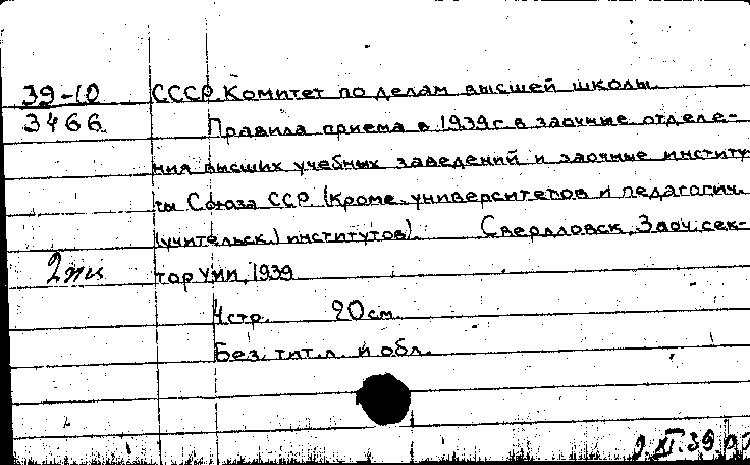 39-10 СССР. Комитет по делам высшей школы.
3466 Правила приема в 1939 г. в заочные отделе-
ния высших учебных заведений и заочные институ-
ты Союза ССР. (Кроме университетов и педагогич.
(учительск.) институтов). Свердловск, Заоч. сек-
2 тор УИИ, 1939
4 стр. 20 см.
Без. тит. л. и обл.
9.XI.39